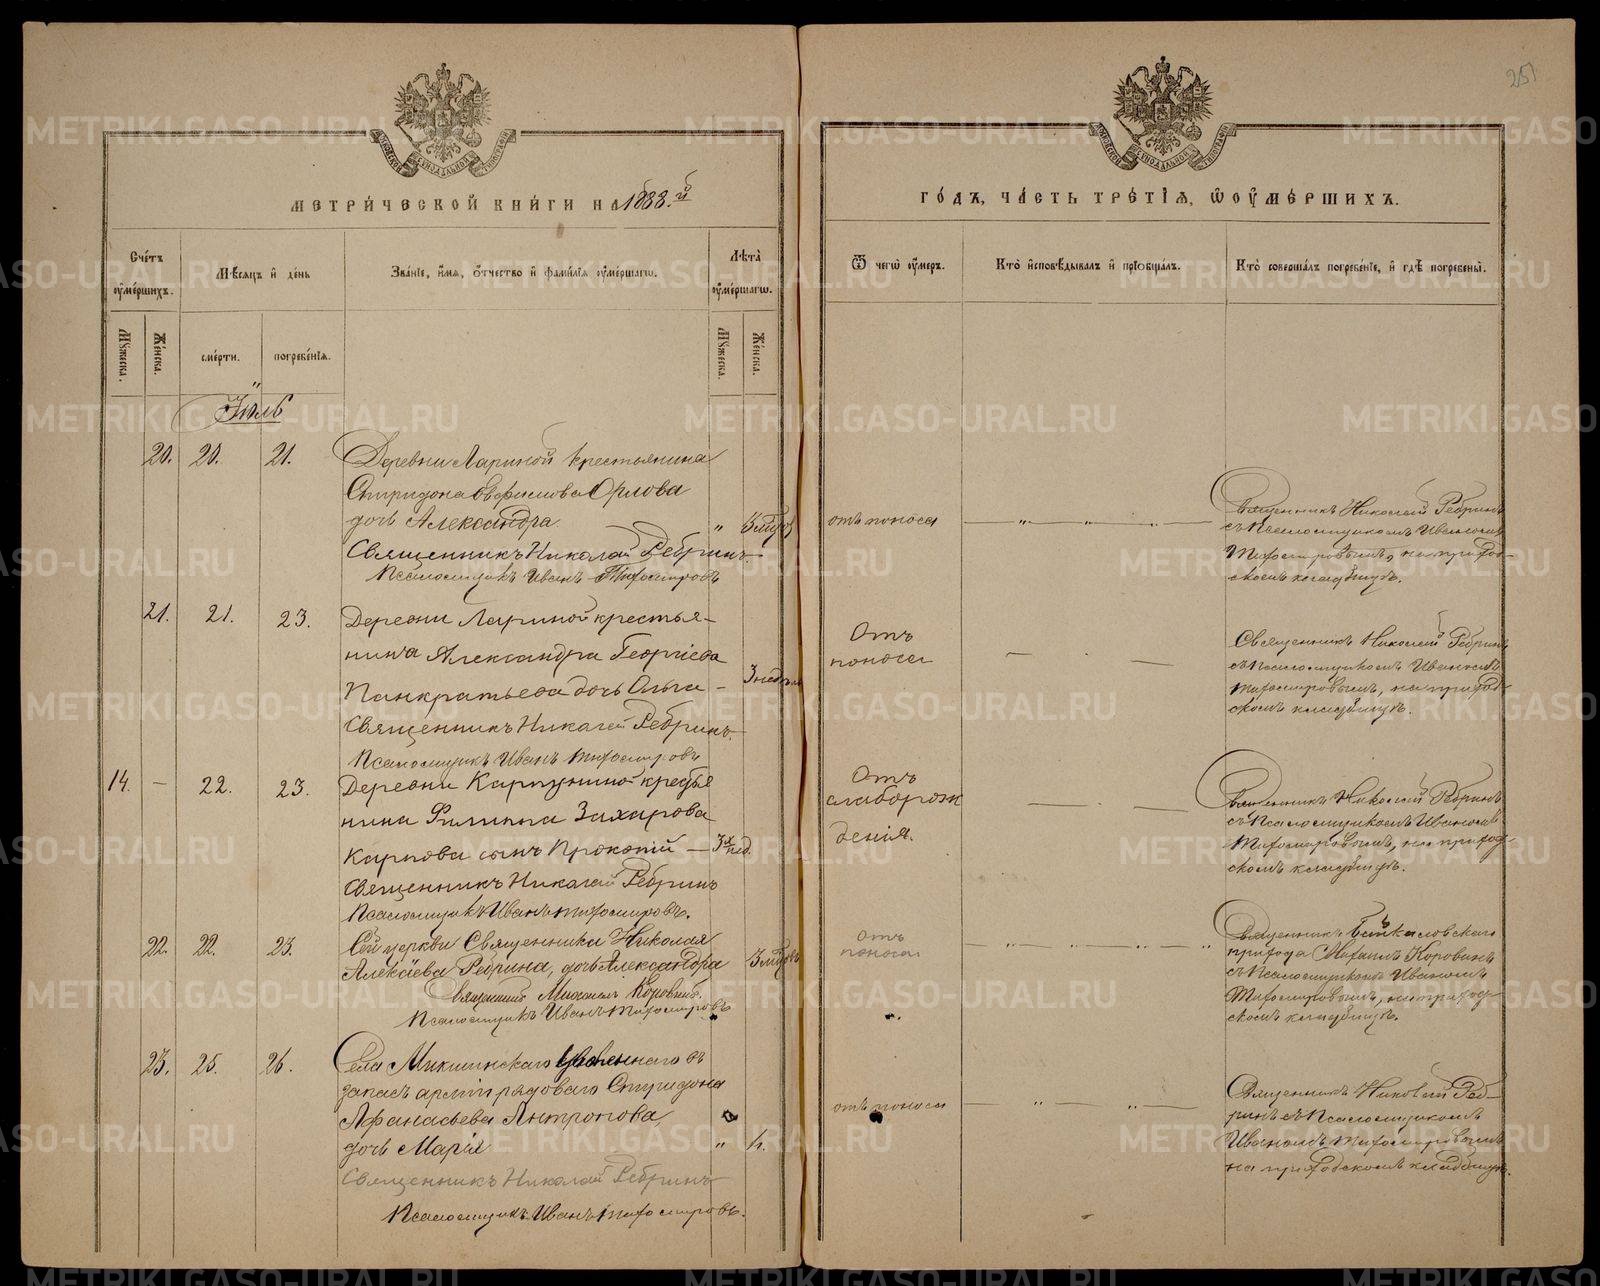 251
МОСКОВСКОЙ СѴНОДАЛЬНОЙ ТИПОГРАФІИ
МОСКОВСКОЙ СѴНОДАЛЬНОЙ ТИПОГРАФІИ
МЕТРИ́ЧЕСКОЙ КНИ́ГИ НА 1888.й
ГО́ДЪ, ЧА́СТЬ ТРЕ́ТІЯ, Ѡ ОУМЕ́РШИХЪ.
Сче́тъ оуме́ршихъ.
Мѣсяцъ и день
Зва́ніе, и́мя, о́тчество и фами́лія оуме́ршагѡ.
Лѣта̀ оуме́ршагѡ.
Ѿ чегѡ̀ оу́меръ.
Кто̀ исповѣ́дывалъ и пріобща́лъ.
Кто̀ соверша́лъ погребе́ніе, и гдѣ̀ погребены̀.
Мꙋ́жеска.
Же́нска.
сме́рти.
погребе́нія.
Мꙋ́жеска.
Же́нска.
Іюль
20. 20. 21.
Деревни Лариной крестьянина
Спиридона Орлова
дочь Александра
Священникъ Николай Ребринъ.
Псаломщикъ Иванъ Тихомировъ
отъ поноса
Священникъ Николай Ребринъ
съ Псаломщикомъ Иваномъ
Тихомировымъ, на приход-
скомъ кладбищѣ.
21. 21. 23.
Деревни Лариной крестья-
нина Александра Георгіева
Панкратьева дочь Ольга –
3 недѣли
Священникъ Николай Ребринъ.
Псаломщикъ Иванъ Тихомировъ
Отъ
поноса
Священникъ Николай Ребринъ
съ Псаломщикомъ Иваномъ
Тихомировымъ, на приход-
скомъ кладбищѣ.
14. – 22. 23.
Деревни Карпуниной крестья
нина Филиппа Захарова
Карпова сынъ Прокопій – 3х нед.
Священникъ Николай Ребринъ
Псаломщикъ Иванъ Тихомировъ.
Отъ
слаборож
денія.
Священникъ Николай Ребринъ
съ Псаломщикомъ Иваномъ
Тихомировымъ, на приход-
скомъ кладбищѣ.
22. 22. 23.
церкви Священника Николая
Алексѣева Ребрина, дочь Александра
Священникъ Михаилъ Коровинъ.
Псаломщикъ Иванъ Тихомировъ
Отъ
поноса.
Священникъ Байкаловскаго
прихода Михаилъ Коровинъ
съ Псаломщикомъ Иваномъ
Тихомировымъ, на приход-
скомъ кладбищѣ.
23. 25. 26.
Села Микшинскаго уволеннаго въ
запасъ арміи рядоваго Спиридона
Афанасьева Антропова,
дочь Марія
Священникъ Николай Ребринъ
Псаломщикъ Иванъ Тихомировъ.
отъ поноса
Священникъ Николай Реб-
ринъ съ Псаломщикомъ
Иваномъ Тихомировымъ
на приходскомъ кладбищѣ.
METRIKI.GASO-URAL.RU